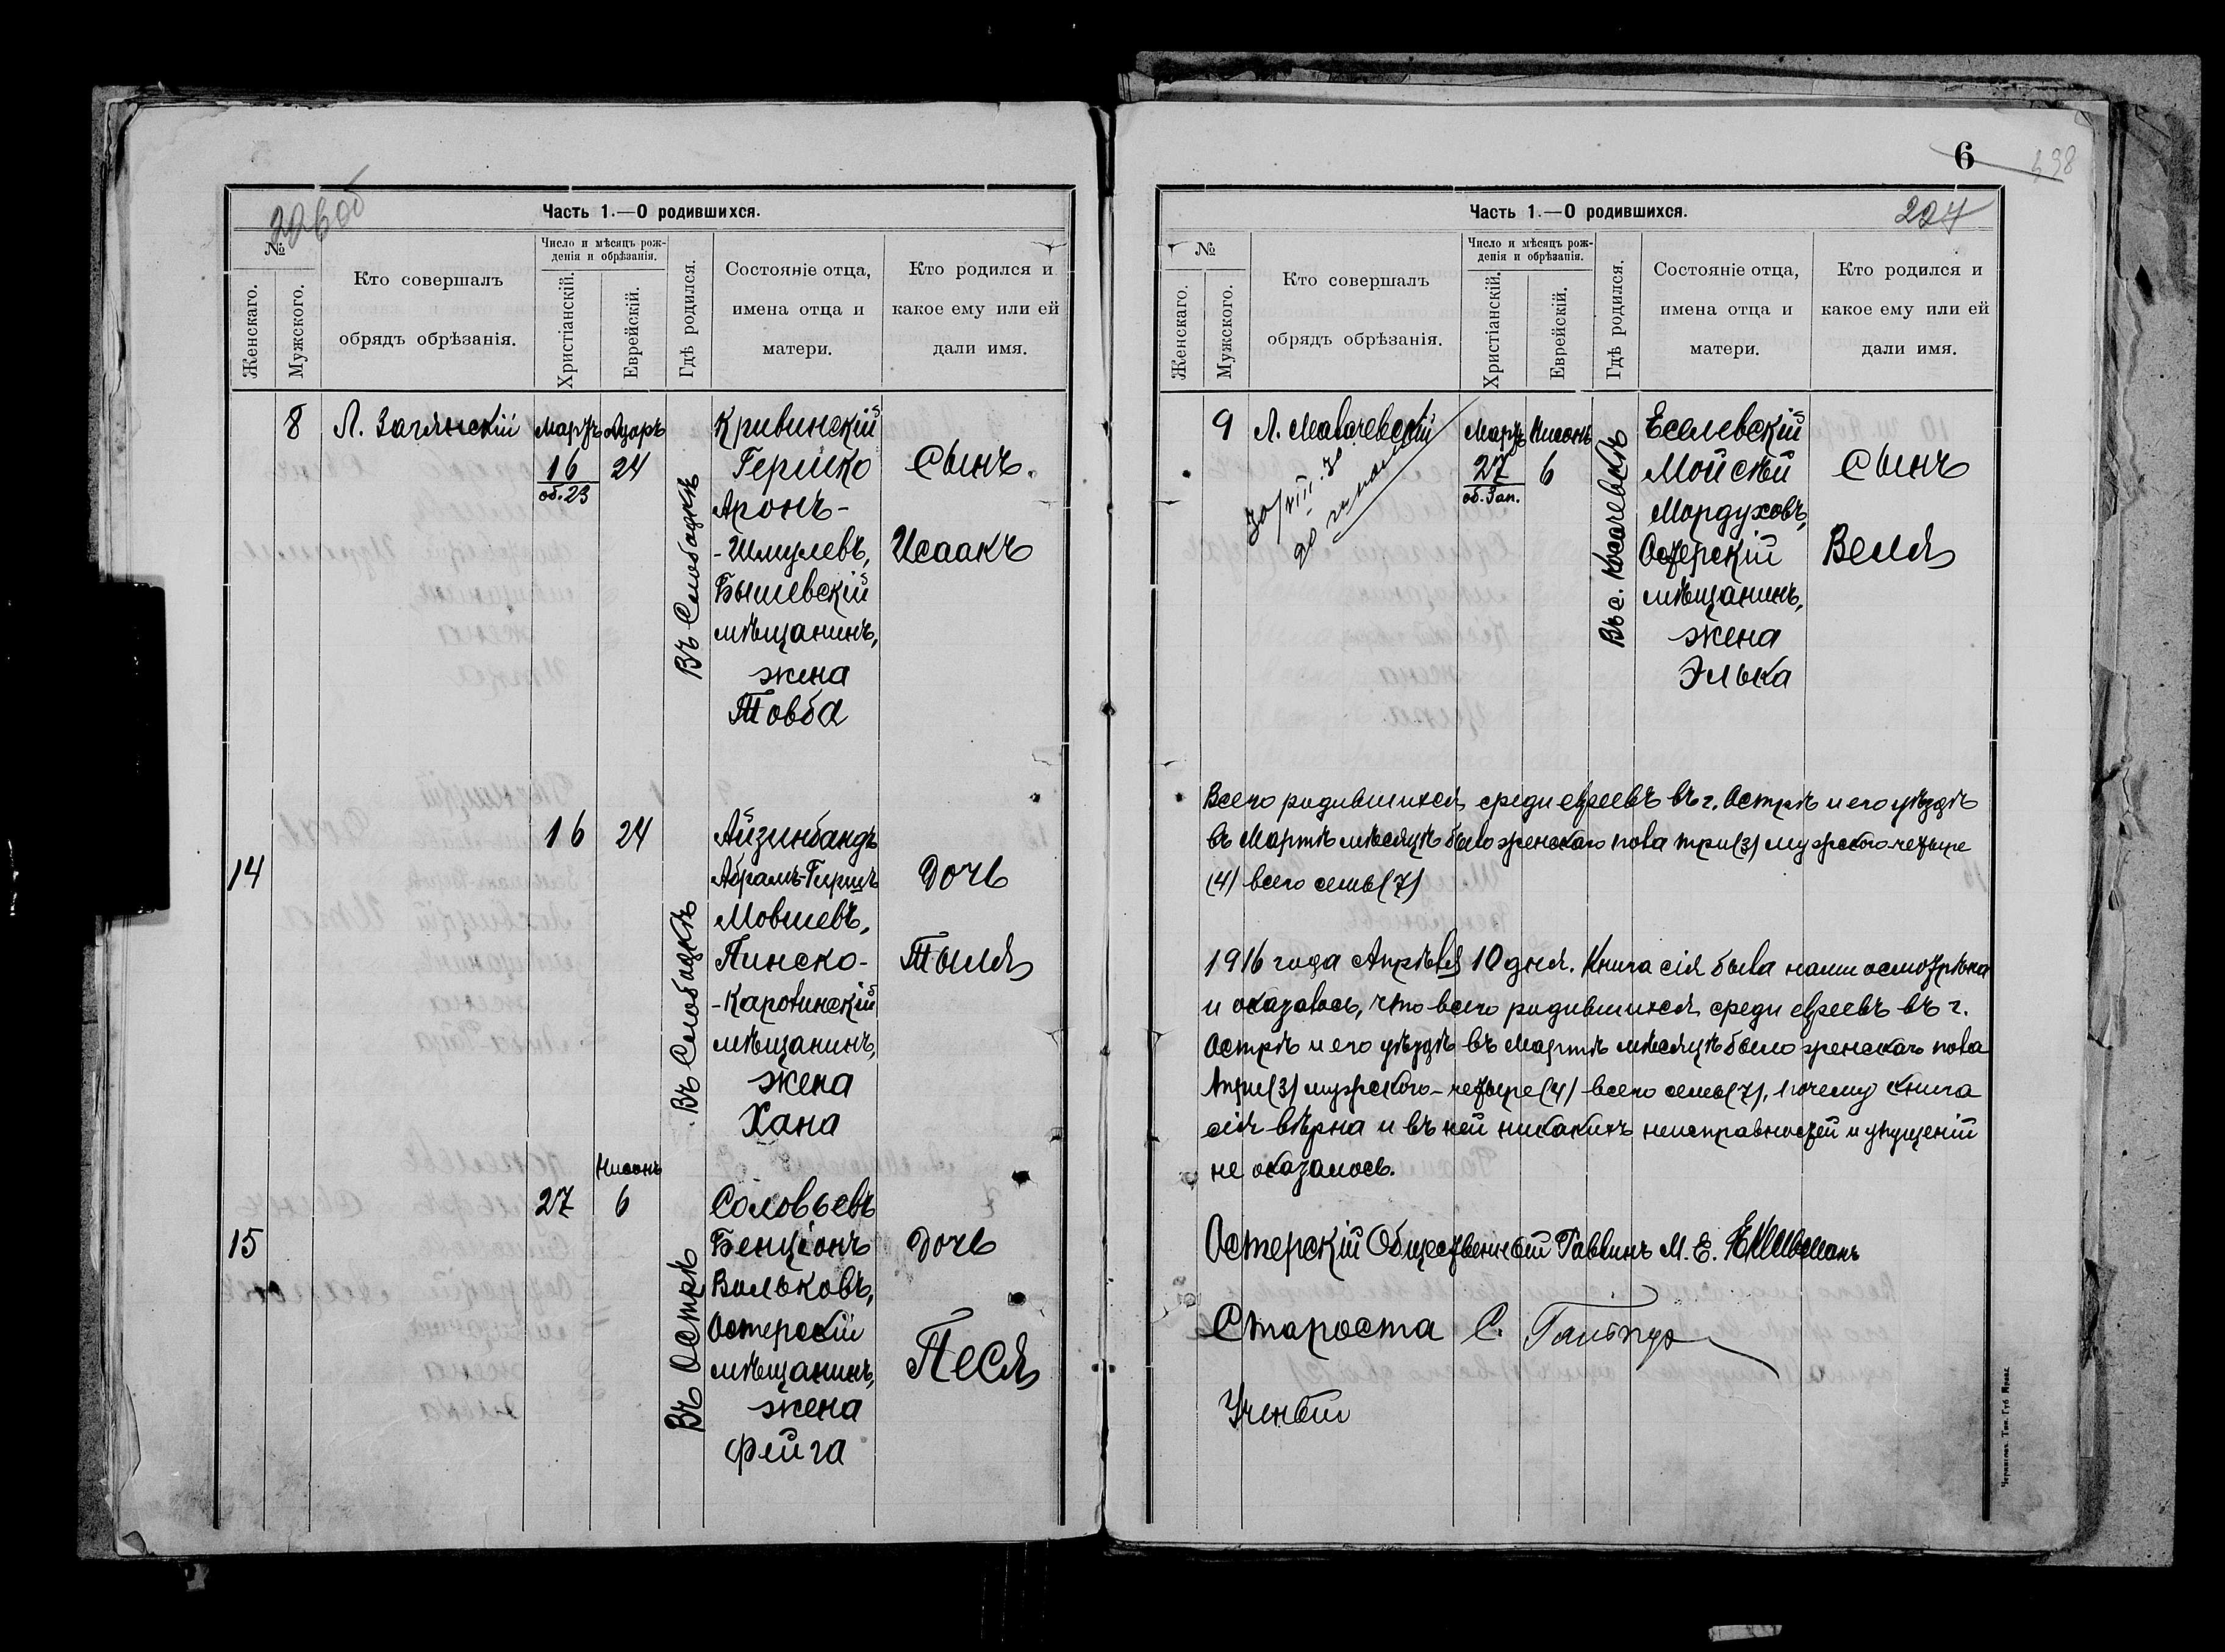 226 об
Часть 1.—О родившихся.
№
Женскаго.
Мужского.
Кто совершалъ
обрядъ обрѣзанія.
Число и мѣсяцъ рож-
денія и обрѣзанія.
Христіанскій.
Еврейскій.
Гдѣ родился.
Состояніе отца,
имена отца и
матери.
Кто родился и
какое ему или ей
дали имя.
8
Мартъ Адаръ
16
об. 23
24
Въ Слободкѣ
Кривинскій
Гершко
Аронъ-
-Шмулевъ,
Бышевскій
мѣщанинъ,
жена
Товба
Сынъ.
Исаакъ
14
16 24
Въ Слободкѣ
Айзинбандъ
Абрамъ-Гиршъ
Мовшевъ,
Пинско-
-Каролинскій
мѣщанинъ,
жена
Хана
Дочь
Тыля
15
Нисонъ
27 6
Въ Острѣ
Соловьевъ
Бенціонъ
Вольковъ,
Остерскій
мѣщанинъ,
жена
Фейга
Дочь
Песя
6
227
Часть 1.—О родившихся.
№
Женскаго.
Мужского.
Кто совершалъ
обрядъ обрѣзанія.
Число и мѣсяцъ рож-
денія и обрѣзанія.
Христіанскій.
Еврейскій.
Гдѣ родился.
Состояніе отца,
имена отца и
матери.
Кто родился и
какое ему или ей
дали имя.
9
30/VIII.30
Мартъ Нисонъ
27
об. 3 ап.
6
Въ с. Косачевкѣ
Еселевскій
Мойсѣй
Мордуховъ,
Остерскій
мѣщанинъ,
жена
Элька
Сынъ
Веля
Всего родившихся среди евреевъ въ г. Острѣ и его уѣздѣ
въ Мартѣ мѣсяцѣ было женскаго пола три (3) мужского-четыре
(4) всего семь (7)
1916 года Апрѣля 10 дня. Книга сія была нами осмотрѣна
и оказалось, что всего родившихся среди евреевъ въ г.
Острѣ и его уѣздѣ въ Мартѣ мѣсяцѣ было женскаго пола
три (3) мужского-четыре (4) всего семь (7), почему книга
сія вѣрна и въ ней никакихъ неисправностей и упущеній
не оказалось.
Остерскій Общественный Раввинъ М. Е.
Староста С.
Ученый
Черниговъ. Тип. Губ. Правл.